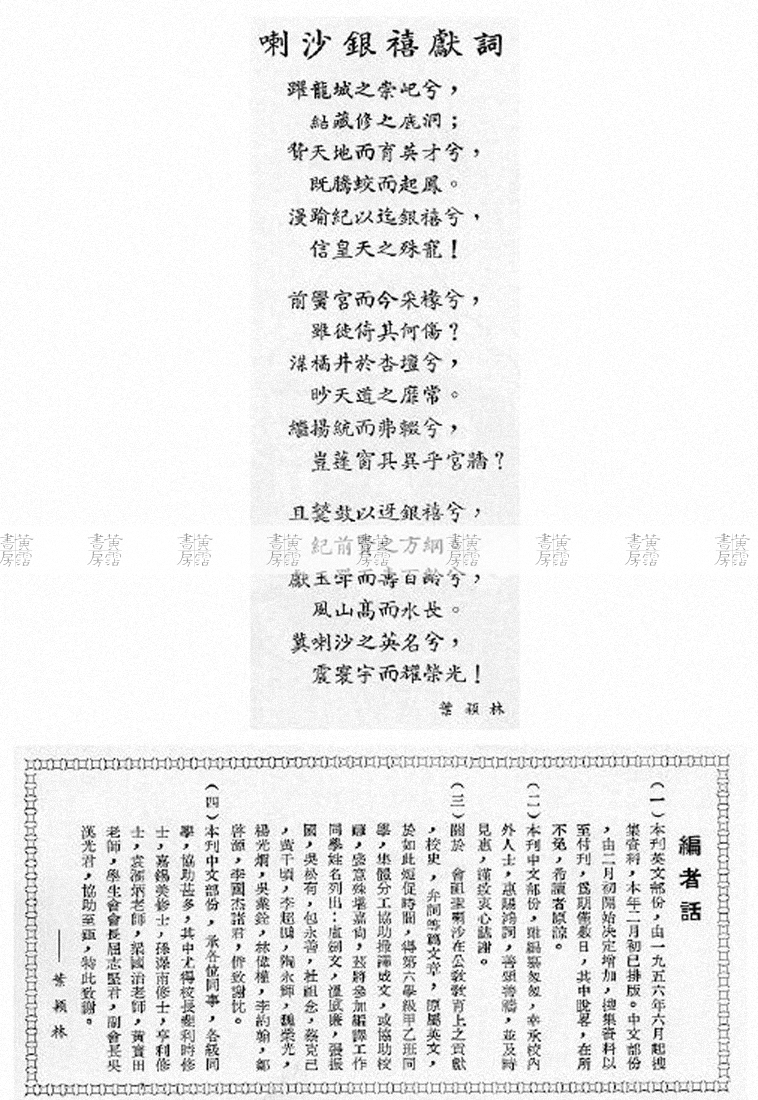 喇沙銀禧獻詞
躍龍城之崇屺兮，
結藏修之庭洞；
贊天地而育英才兮，
既騰蛟而起鳳。
漫踰紀以迄銀禧兮，
信皇天之殊寵！
前黌宮而今采椽兮，
雖徙倚其何傷？
渫橘井於杏壇兮，
眇天道之靡常。
繼揚統而弗輟兮，
豈蓬窗其異乎宮牆？
且鼓以迓銀禧兮，
紀前賢之方綱
獻玉斝而壽百齡兮，
風山高而水長。
冀喇沙之英名兮，
震寰宇而耀榮光！
葉穎林
編者話
（一）本刊英文部份，由一九五六年六月起搜
集資料，本年二月初已排版。中文部份
，由二月初開始決定增加，搜集資料以
至付刊，爲期僅數日，其中脫畧，在所
不免，希讀者原諒。
（二）本刊中文部份，雖編纂匆匆，幸承校內
外人士，惠賜鴻詞，善頌善禱，並及時
見惠，謹致衷心感謝。
（三）關於　會祖聖喇沙在公敎敎育上之貢獻
，校史，弁詞等篇文章，原屬英文，
於如此短促時間，得第六學級甲乙班同
學，集體分工協助撥譯成文，或協助校
讎，盛意殊堪嘉尚，茲將參加編譯工作
同學姓名列出：盧劍文，溫威廉，張振
國，吳松有，包永善，杜祖念，蔡克己
，黃千頃，李超鵬，陶永鏵，魏榮光，
楊光烱，吳業銓，林偉權，李約翰，鄒
啓源，李國杰諸君，倂致謝忱。
（四）本刊中文部份，承各位同事，各級同
學，協助甚多，其中尤得校長變利時修
士，嘉錫美修士，孫澤甫修士，亨利修
士，袁炳老師，梁國治老師，黃寳田
老師，學生會會長屈志堅君，副會長吳
漢光君，協助至鉅，特此致謝。
——葉穎林
黃霑書房